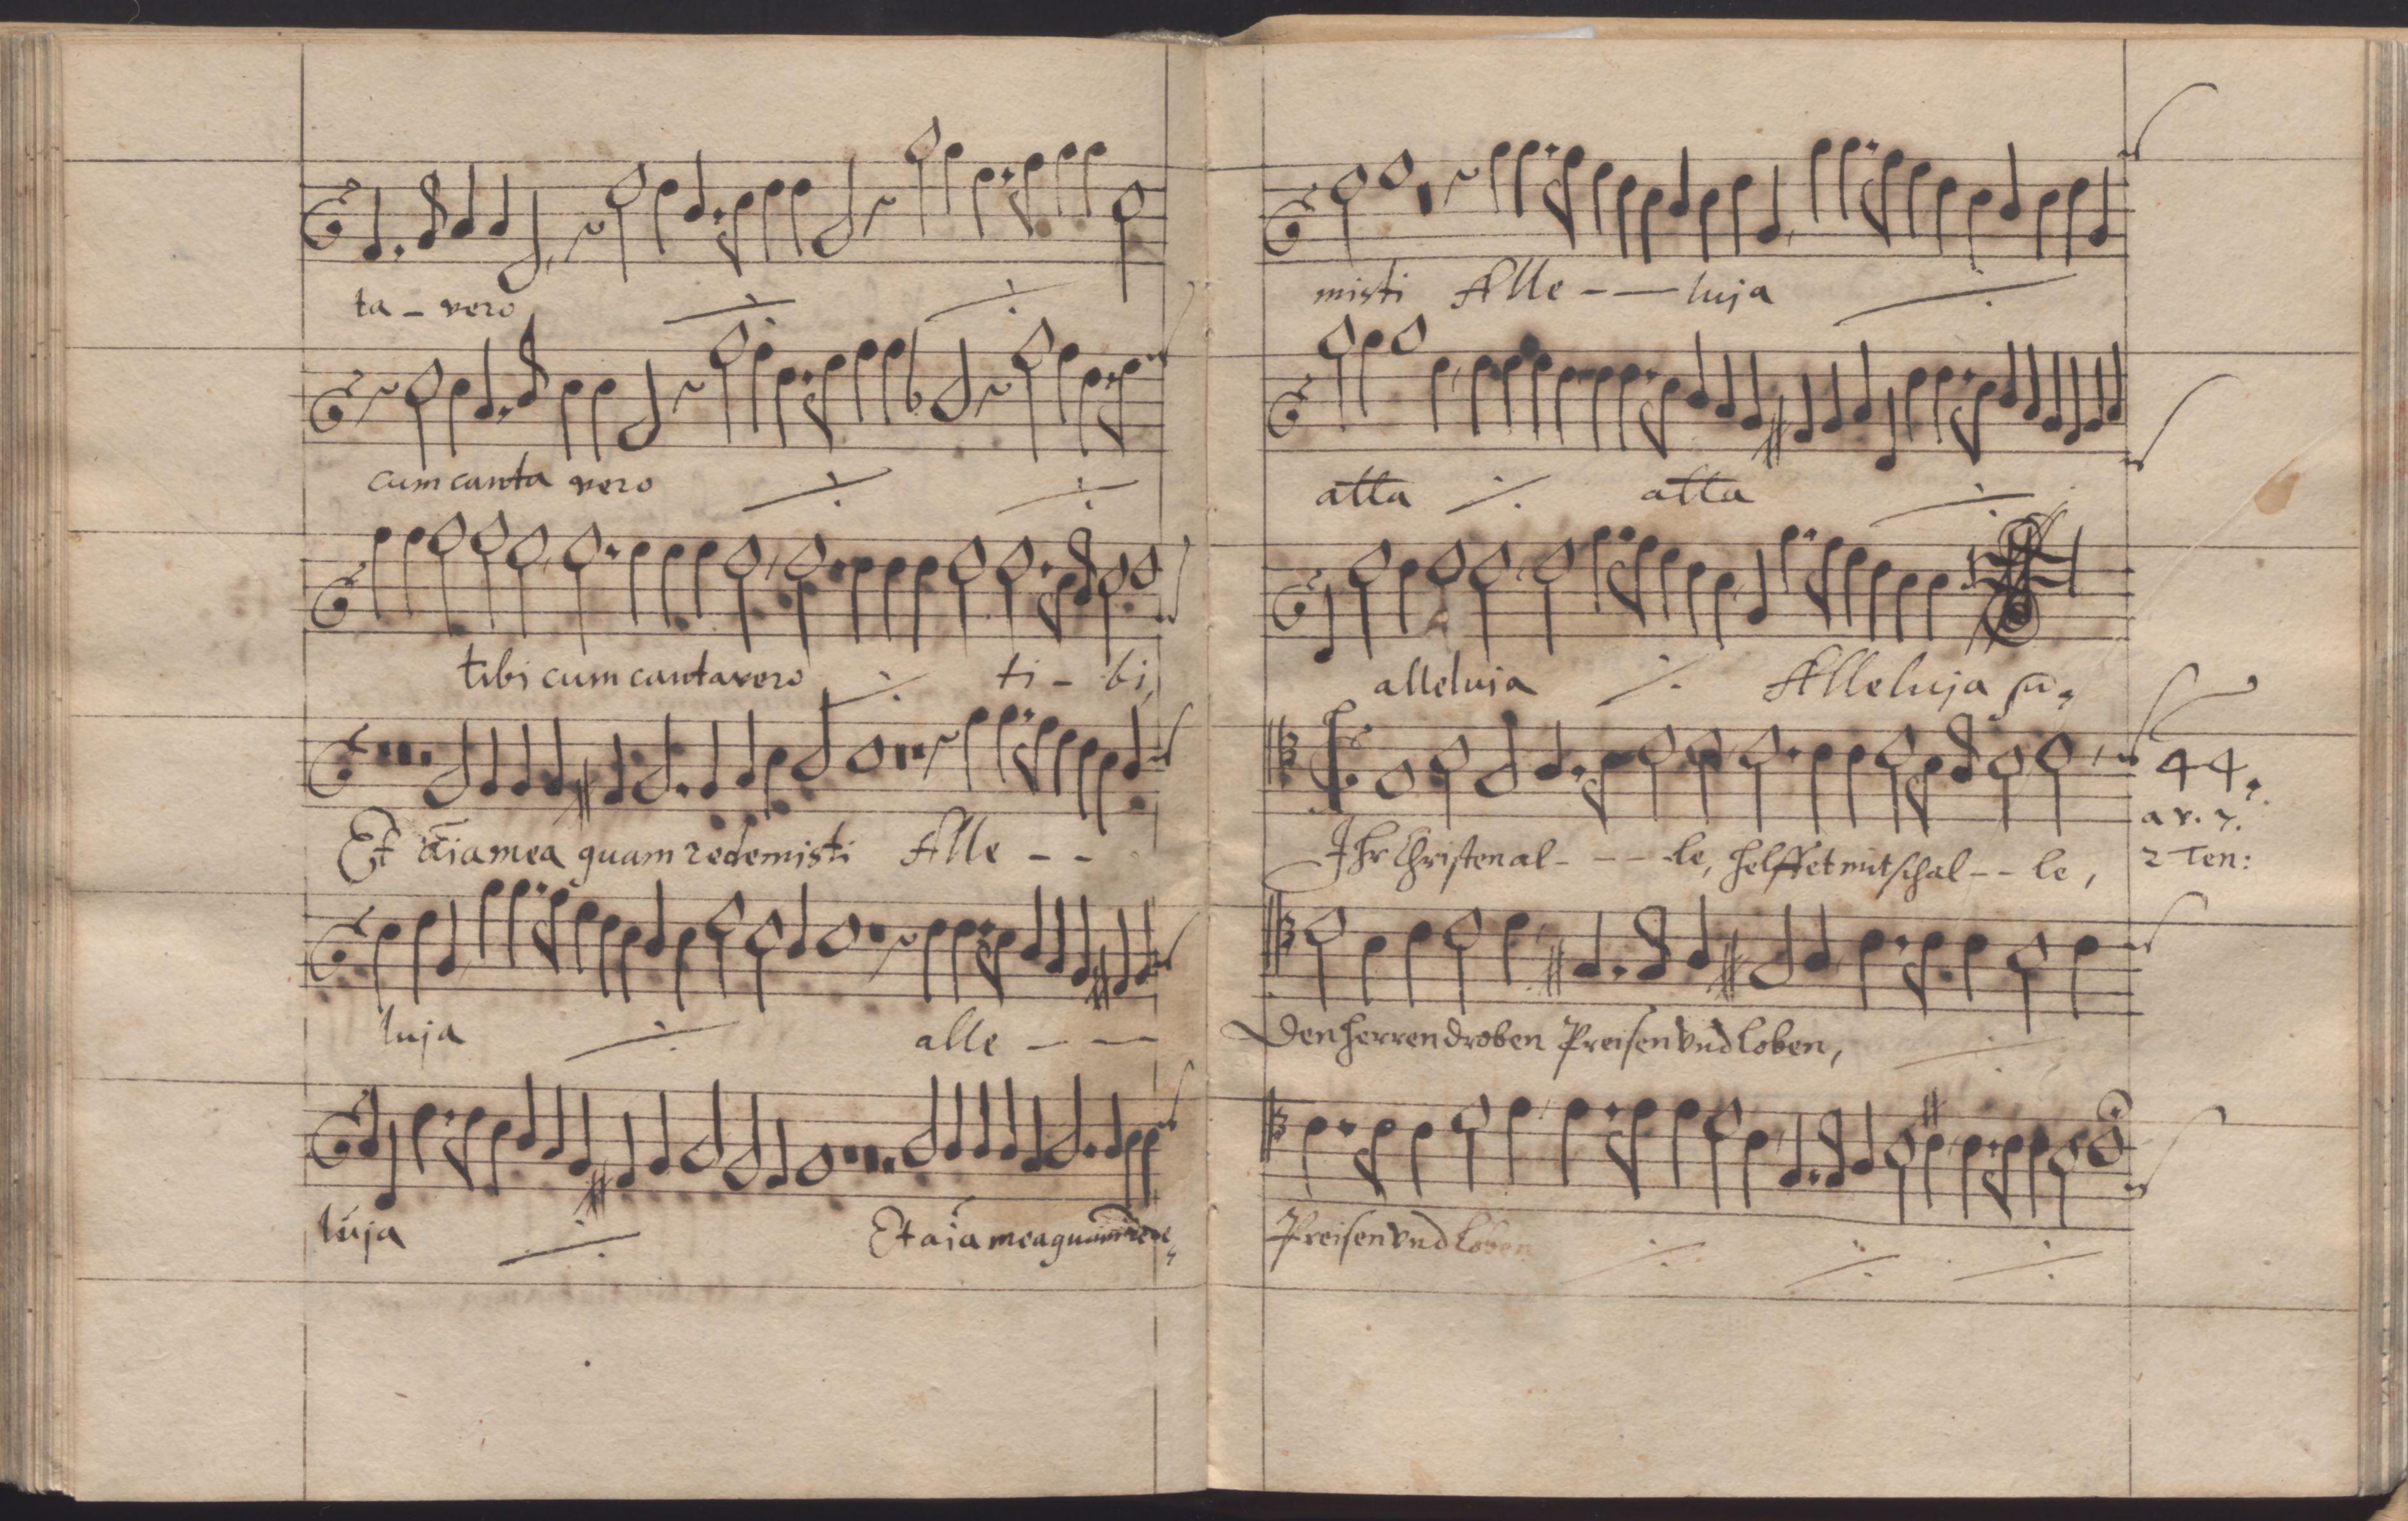 ta - vero
cum canta vero
tibi cum cantavero ti - bi,
Et aīa mea quam redemisti Alle - -
luja alle - -
luja Et aīa mea quam rede,
misti Alle - - luja
atta atta
alleluia Alleluja
Ihr Christen al - - - le, helffet mit schal - - le,
44.
a v. 7.
2 Ten:
Den herren droben Preisen vnd loben,
Preisen vnd loben